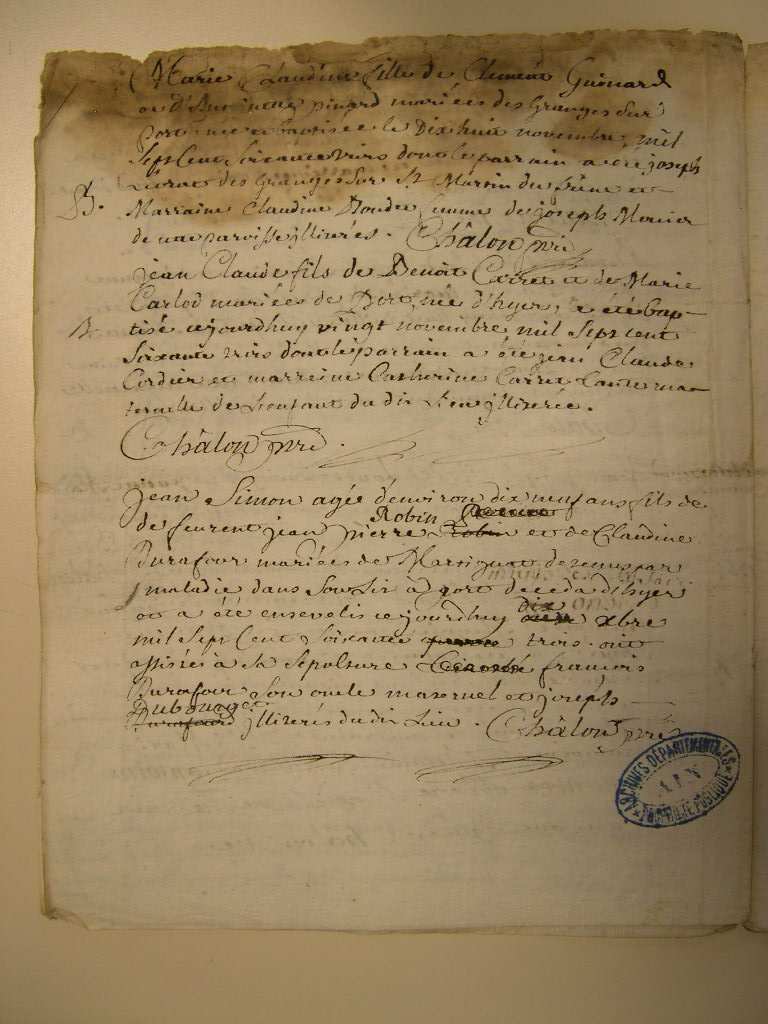 Marie Claudine fille de Clement Guonard
et d' pinard mariées des Granges sur
port née et baptisée le Dix huit novembre, mil
Sept Cent Soixante trois dont le parrain a été joseph
des Granges sur St Martin du frêne et
B. Marraine Claudine femme de joseph Mercier
de notre paroisse illiterés. Châlon ptre
jean Claude fils de Benoit Carret et de Marie
Carlod mariées de Port, née d'hyer, a été bap-
B. tisé cejourdhuy vingt novembre mil sept cent
Soixante trois dont le parrain a été jean Claude
Cordier et marreine Catherine Carret tante ma-
ternelle de L'enfant du dit Lieu illiterée.
Châlon ptre.
jean Simon agée d'environ dix neuf ans fils de
de feu jean pierre Robin et de Claudine
Burafour mariées de Martignat detenus par
maladie dans Son Lit à port deceda d'hyer
et a été ensevelis cejourdhuy dix xbre
mil Sept Cent Soixante trois. ont
assistés à Sa Sepulture francois
Burafour Son oncle maternel et joseph
Dubourget illiterés du dit Lieu. Châlon ptre
ARCHIVES DÉPARTEMENTALES
AIN
* PROPRIÉTÉ PUBLIQUE *